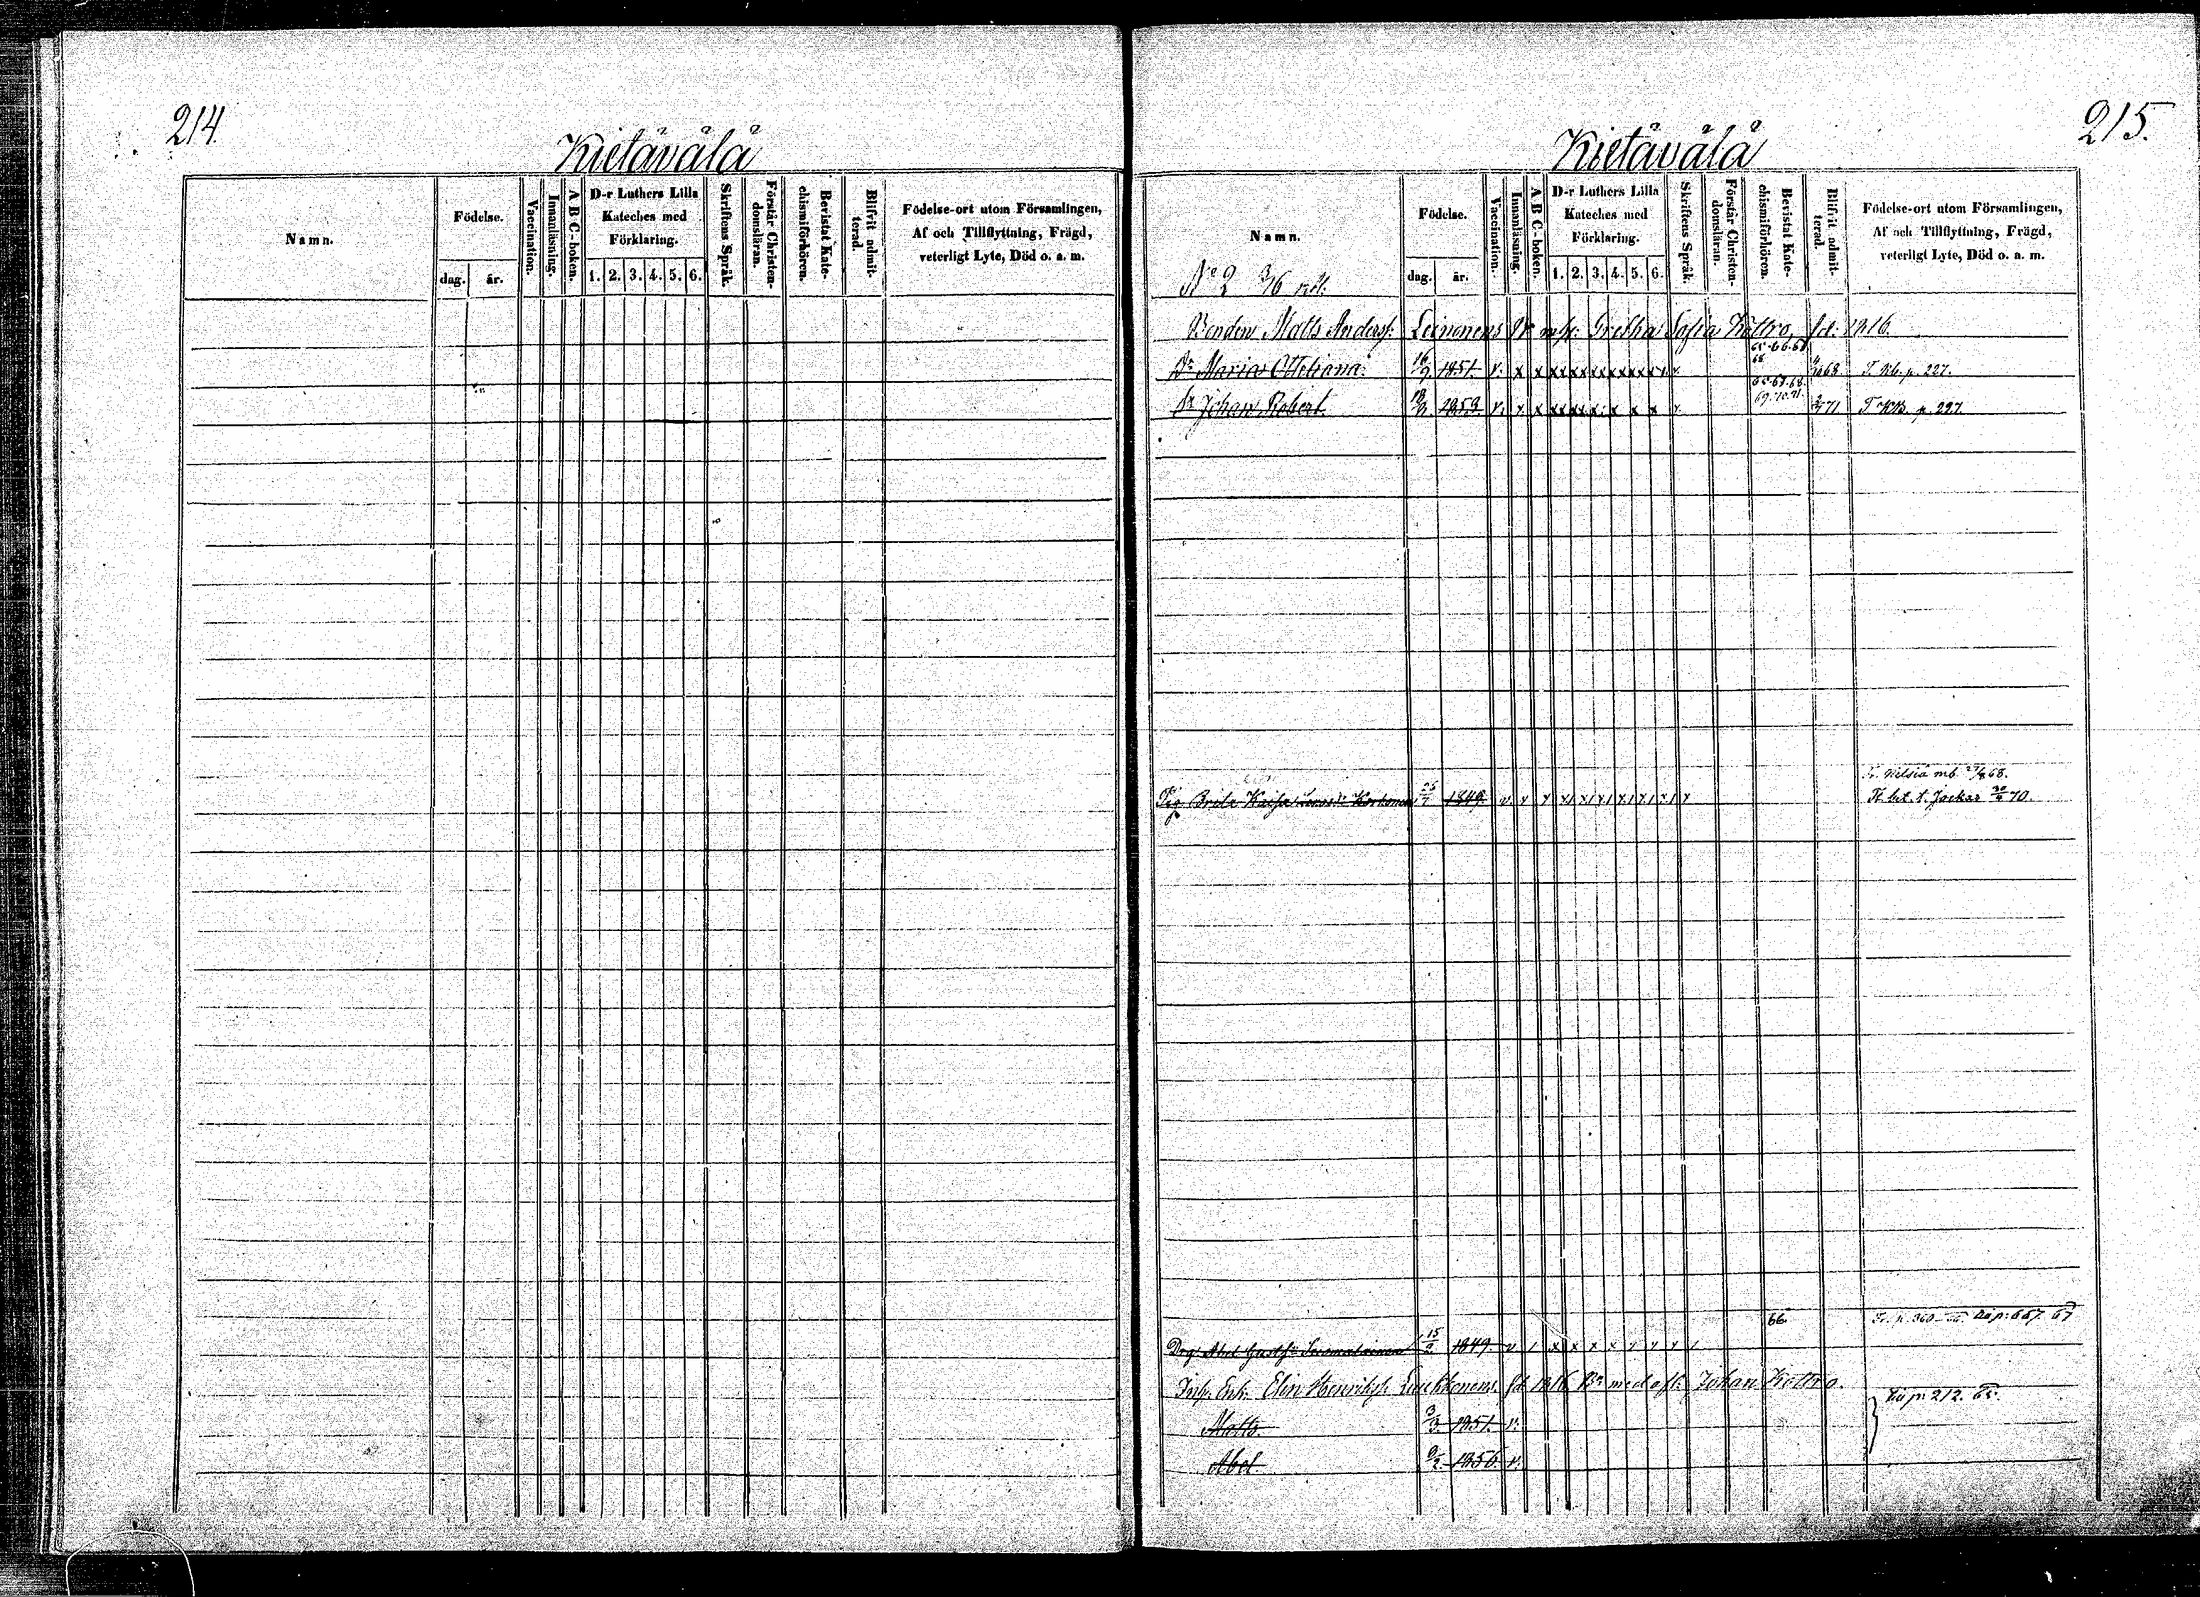 214.
Kietävälä
Namn.
Födelse.
dag. år.
Vaccination.
Innanläsning.
A B C-boken.
D-r Luthers Lilla
Kateches med
Förklaring.
1. 2. 3. 4. 5. 6.
Skriftens Språk.
Förstår Christen-
domsläran.
Bevistat Kate-
chismiförhören.
Blifvit admit-
terad.
Födelse-ort utom Församlingen,
Af och Tillflyttning, Frägd,
veterligt Lyte, Död o. a. m.
215.
Kietäválä
Namn.
No 2
Födelse.
dag. år.
Vaccination.
Innanläsning.
A B C-boken.
D-r Luthers Lilla
Kateches med
Förklaring.
1. 2. 3. 4. 5. 6.
Skriftens Språk.
Förstår Christen-
domsläran.
Bevistat Kate-
chismiförhören.
Blifvit admit-
terad.
Födelse-ort utom Församlingen,
Af och Tillflyttning, Frägd,
veterligt Lyte, Död o. a. m.
Bonden Matts Andersf: Leinonens Dr m/h: Gretha Sofia Kottro, fd: 1816.
Dr Maria Ottiliana. 16/9. 1851. v. x x x x x x x x 68 T. Kb. p. 227.
Sr Johan Robert 1853 v. x x x x x x x x 69.70.71. 71 T KB. p. 227.
Fr. Nilsiä mb 68.
Pig. Brita Kaisa Korhonen 1849. v. K bet. t. Jockas 70.
66. Fr. p. 360 p: 667. 67
Drg Abel Gustf: 15/2 1849. v
Inh. Enk. Elin Henriksf: Luukkonens fd 1816 Br med afl: Johan Kottro.
p: 212. 65.
Matts. 3/3. 1851. v.
Abel. 9/2. 1856. v.